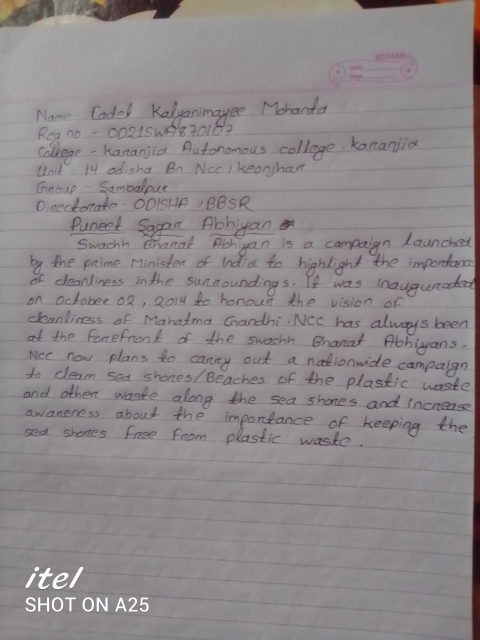 Name Cadet Kalyanimayee Mohanta
Reg no - OD21SWA870107
College - Karanjia Autonomous college, karanjia
Unit 14 odisha Bn Ncc, keonjhar
Group - Sambalpur
Directorate - ODISHA, BBSR
Puneet Sagar Abhiyan
Swachh Bharat Abhiyan is a campaign launched
by the prime Minister of India to highlight the importance
of cleanliness in the surroundings. It was inaugurated
on october 02, 2014 to honour the vision of
cleanliness of Mahatma Gandhi. Ncc has always been
at the forefront of the swachh Bharat Abhiyans.
Ncc now plans to carry out a nationwide campaign
to clean sea shores/Beaches of the plastic waste
and other waste along the sea shores and increase
awareness about the importance of keeping the
sea shores free from plastic waste.
itel
SHOT ON A25